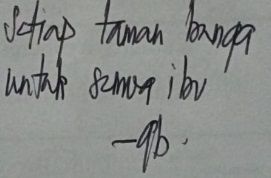 Setiap taman bangga
untuk semua ibu
-qb.